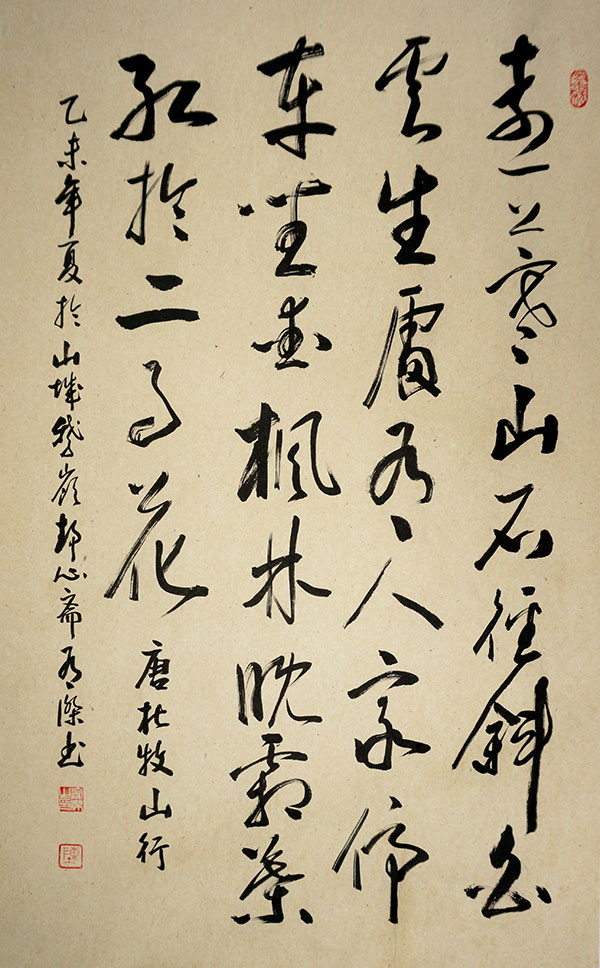 遠上寒山石徑斜白
雲生處有人家停
車坐愛楓林晚霜葉
紅於二月花
唐杜牧山行
乙未年夏於山城鵝嶺靜心斋有傑书